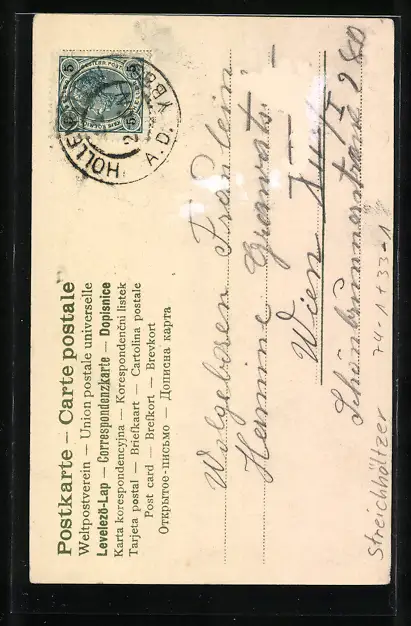 Postkarte – Carte postale
Weltpostverein — Union postale universelle
Levelező-Lap — Correspondenzkarte — Dopisnice
Karta korespondencyjna — Korespondenční listek
Tarjeta postal — Briefkaart — Cartolina postale
Post card — Brefkort — Brevkort
Открытое-письмо — Дописна карта
5 5
HOLLEN A.D. YBBS
Wolgeboren Fräulein
Hermine
Wien XII/I
Schönbrunnerstrasse 280
Streichhöltzer 74-1+33-1